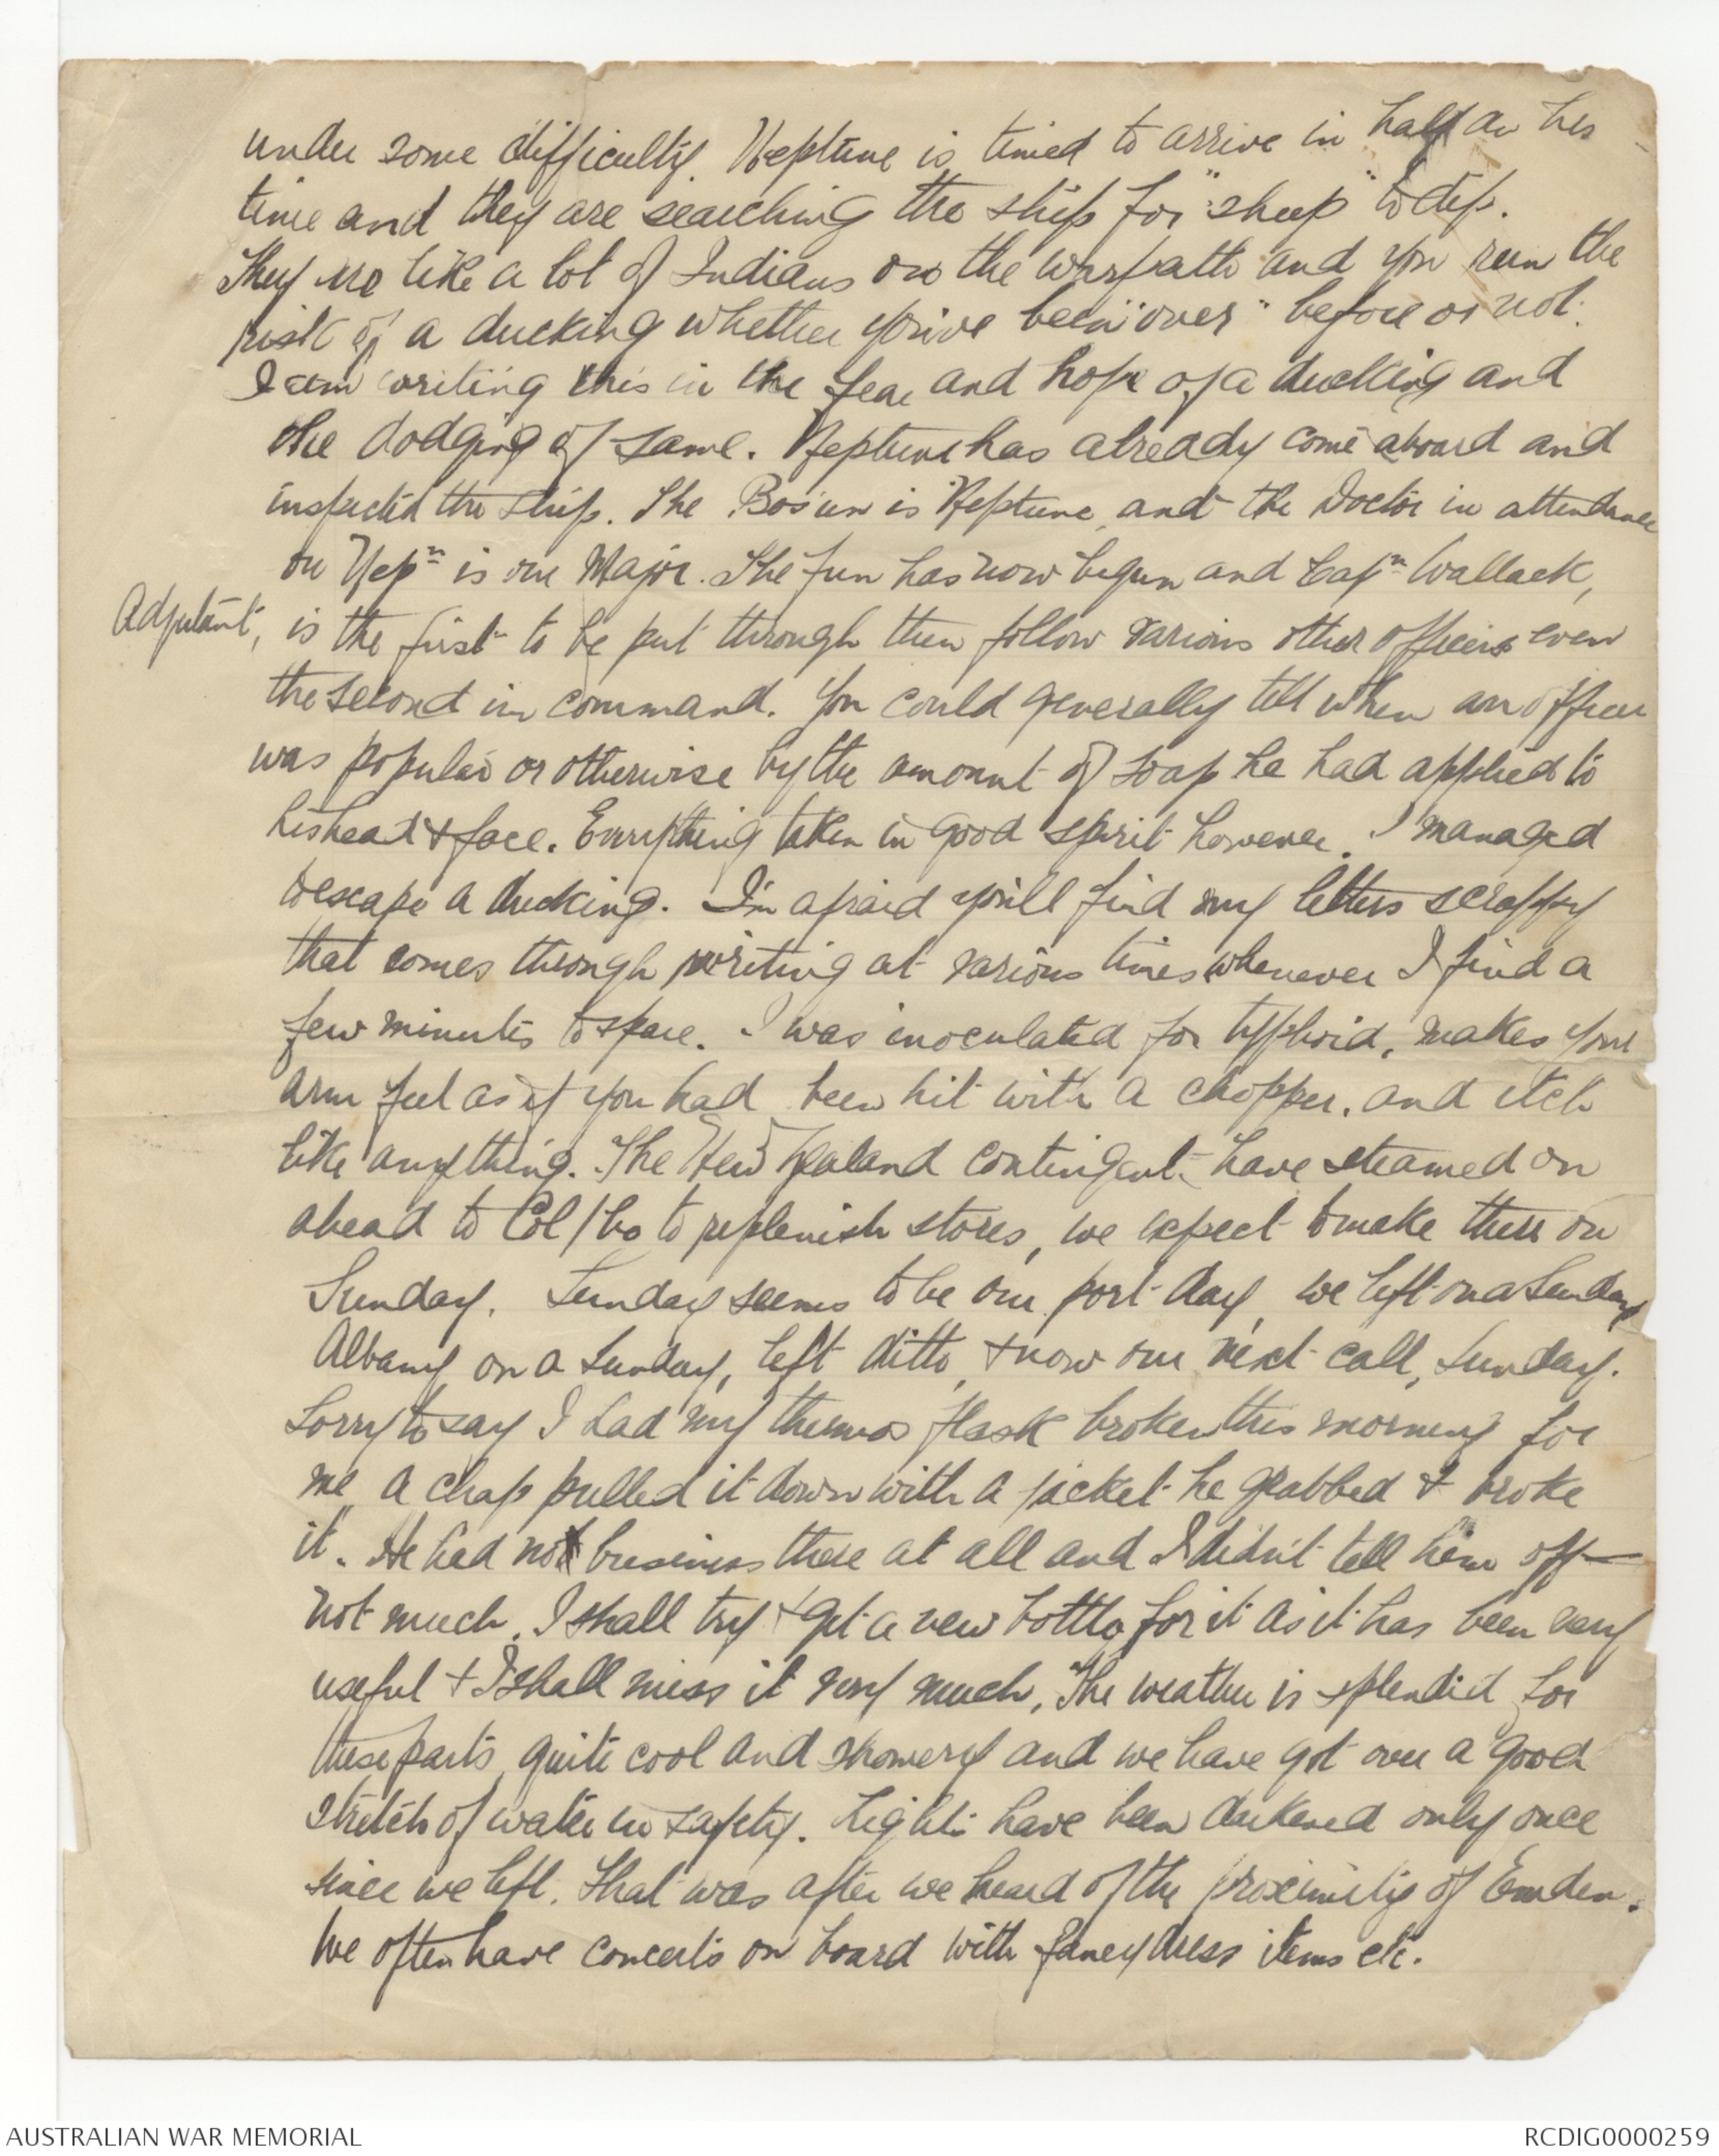 under some difficulty. Neptune is timed to arrive in half an hrs
time and they are searching the ship for "sheep" to dip.
They are like a lot of Indians on the warpath and you run the
risk of a ducking whether you've been "over" before or not.
I am writing this in the fear and hope of a ducking and
the dodging of same. Neptune has already come aboard and
inspected the ship. The Bos'un is Neptune, and the Doctor in attendance
on Nepn is our Major. The fun has now begun and Capn Wallack,
Adjutant, is the first to be put through then follow various other officers even
the second in command. You could generally tell when an officer
was popular or otherwise by the amount of soap he had applied to
his head & face. Everything taken in good spirit however. I managed
to escape a ducking. I'm afraid you'll find my letters scrappy
that comes through writing at various times whenever I find a
few minutes to spare. I was inoculated for typhoid, makes your
arm feel as if you had been hit with a chopper, and itch
like anything. The New Zealand contingent have steamed on
ahead to Col/bo to replenish stores, we expect to make there on
Sunday. Sunday seems to be our port day, we left on a Sunday
Albany on a Sunday, left ditto, & now our next call, Sunday.
Sorry to say I had my thermos flask broken this morning for
me, a chap pulled it down with a jacket he grabbed & broke
it. He had no business there at all and I didn't tell him off -
not much. I shall try & get a new bottle for it as it has been very
useful & I shall miss it very much. The weather is splendid for
these parts, quite cool and showery and we have got over a good
stretch of water in safety. Lights have been darkened only once
since we left. That was after we heard of the proximity of Emden.
We often have concerts on board with fancy dress items etc.
AUSTRALIAN WAR MEMORIAL
RCDIG0000259